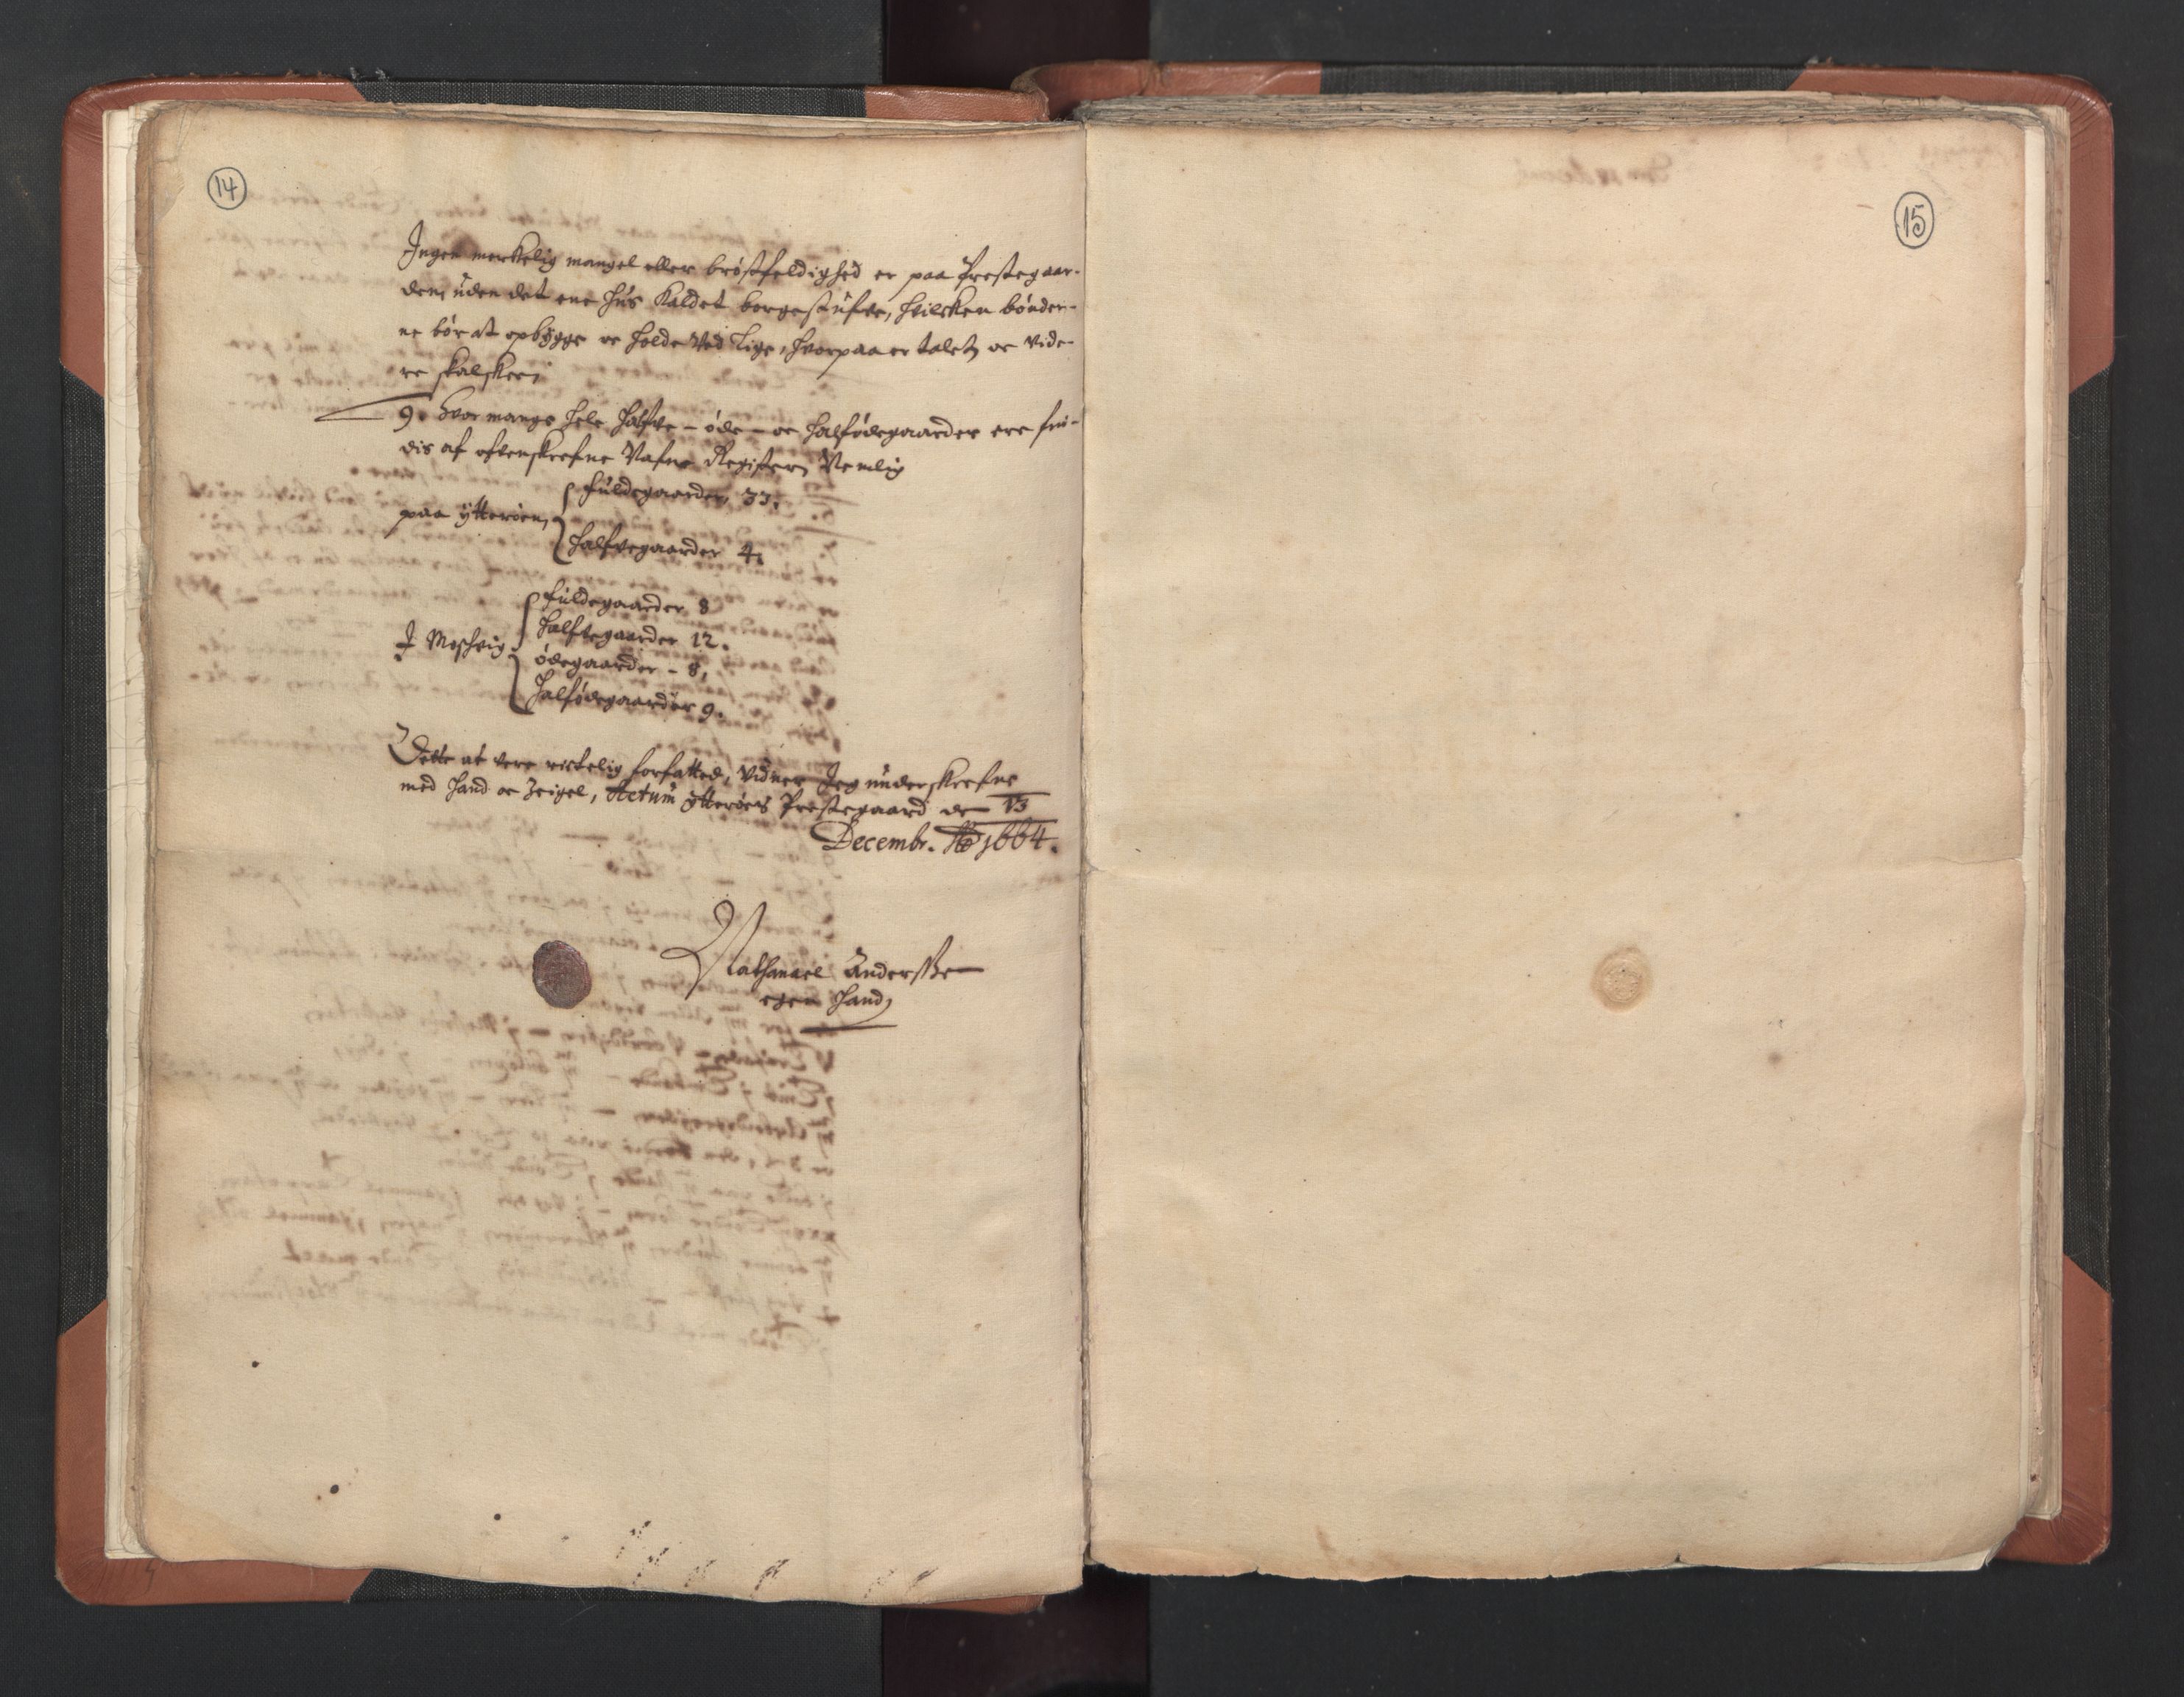 14
Ingen merkelig mangel eller bröstfeldighed er paa Prestegaar-
den, uden det ene Hus kaldet borgestufve, hvilcken bönder-
ne bör at opbygge oc holde ved lige, hvorpaa er talet, oc vide-
re skal skee,
9. Hvor mange hele halfve - öde - oc halfödegaarder ere fin-
dis af ofvenskrefne Nafne Register, Nemlig
paa ytteröen,
Fuldegaarder, 33.
Halfvegaarder 4,
J Moshvig
Fuldegaarder 8
Halfvegaarder 12.
ödegaarder - 8,
Halfödegaarder 9.
Dette at vere rictelig forfatted, vidner Jeg underskrefne
med Hand oc Zeigel, Actum ytteröens Prestegaard de 13
Decembr. Ao 1664.
Nathanael Anderssen
egen Hand,
15